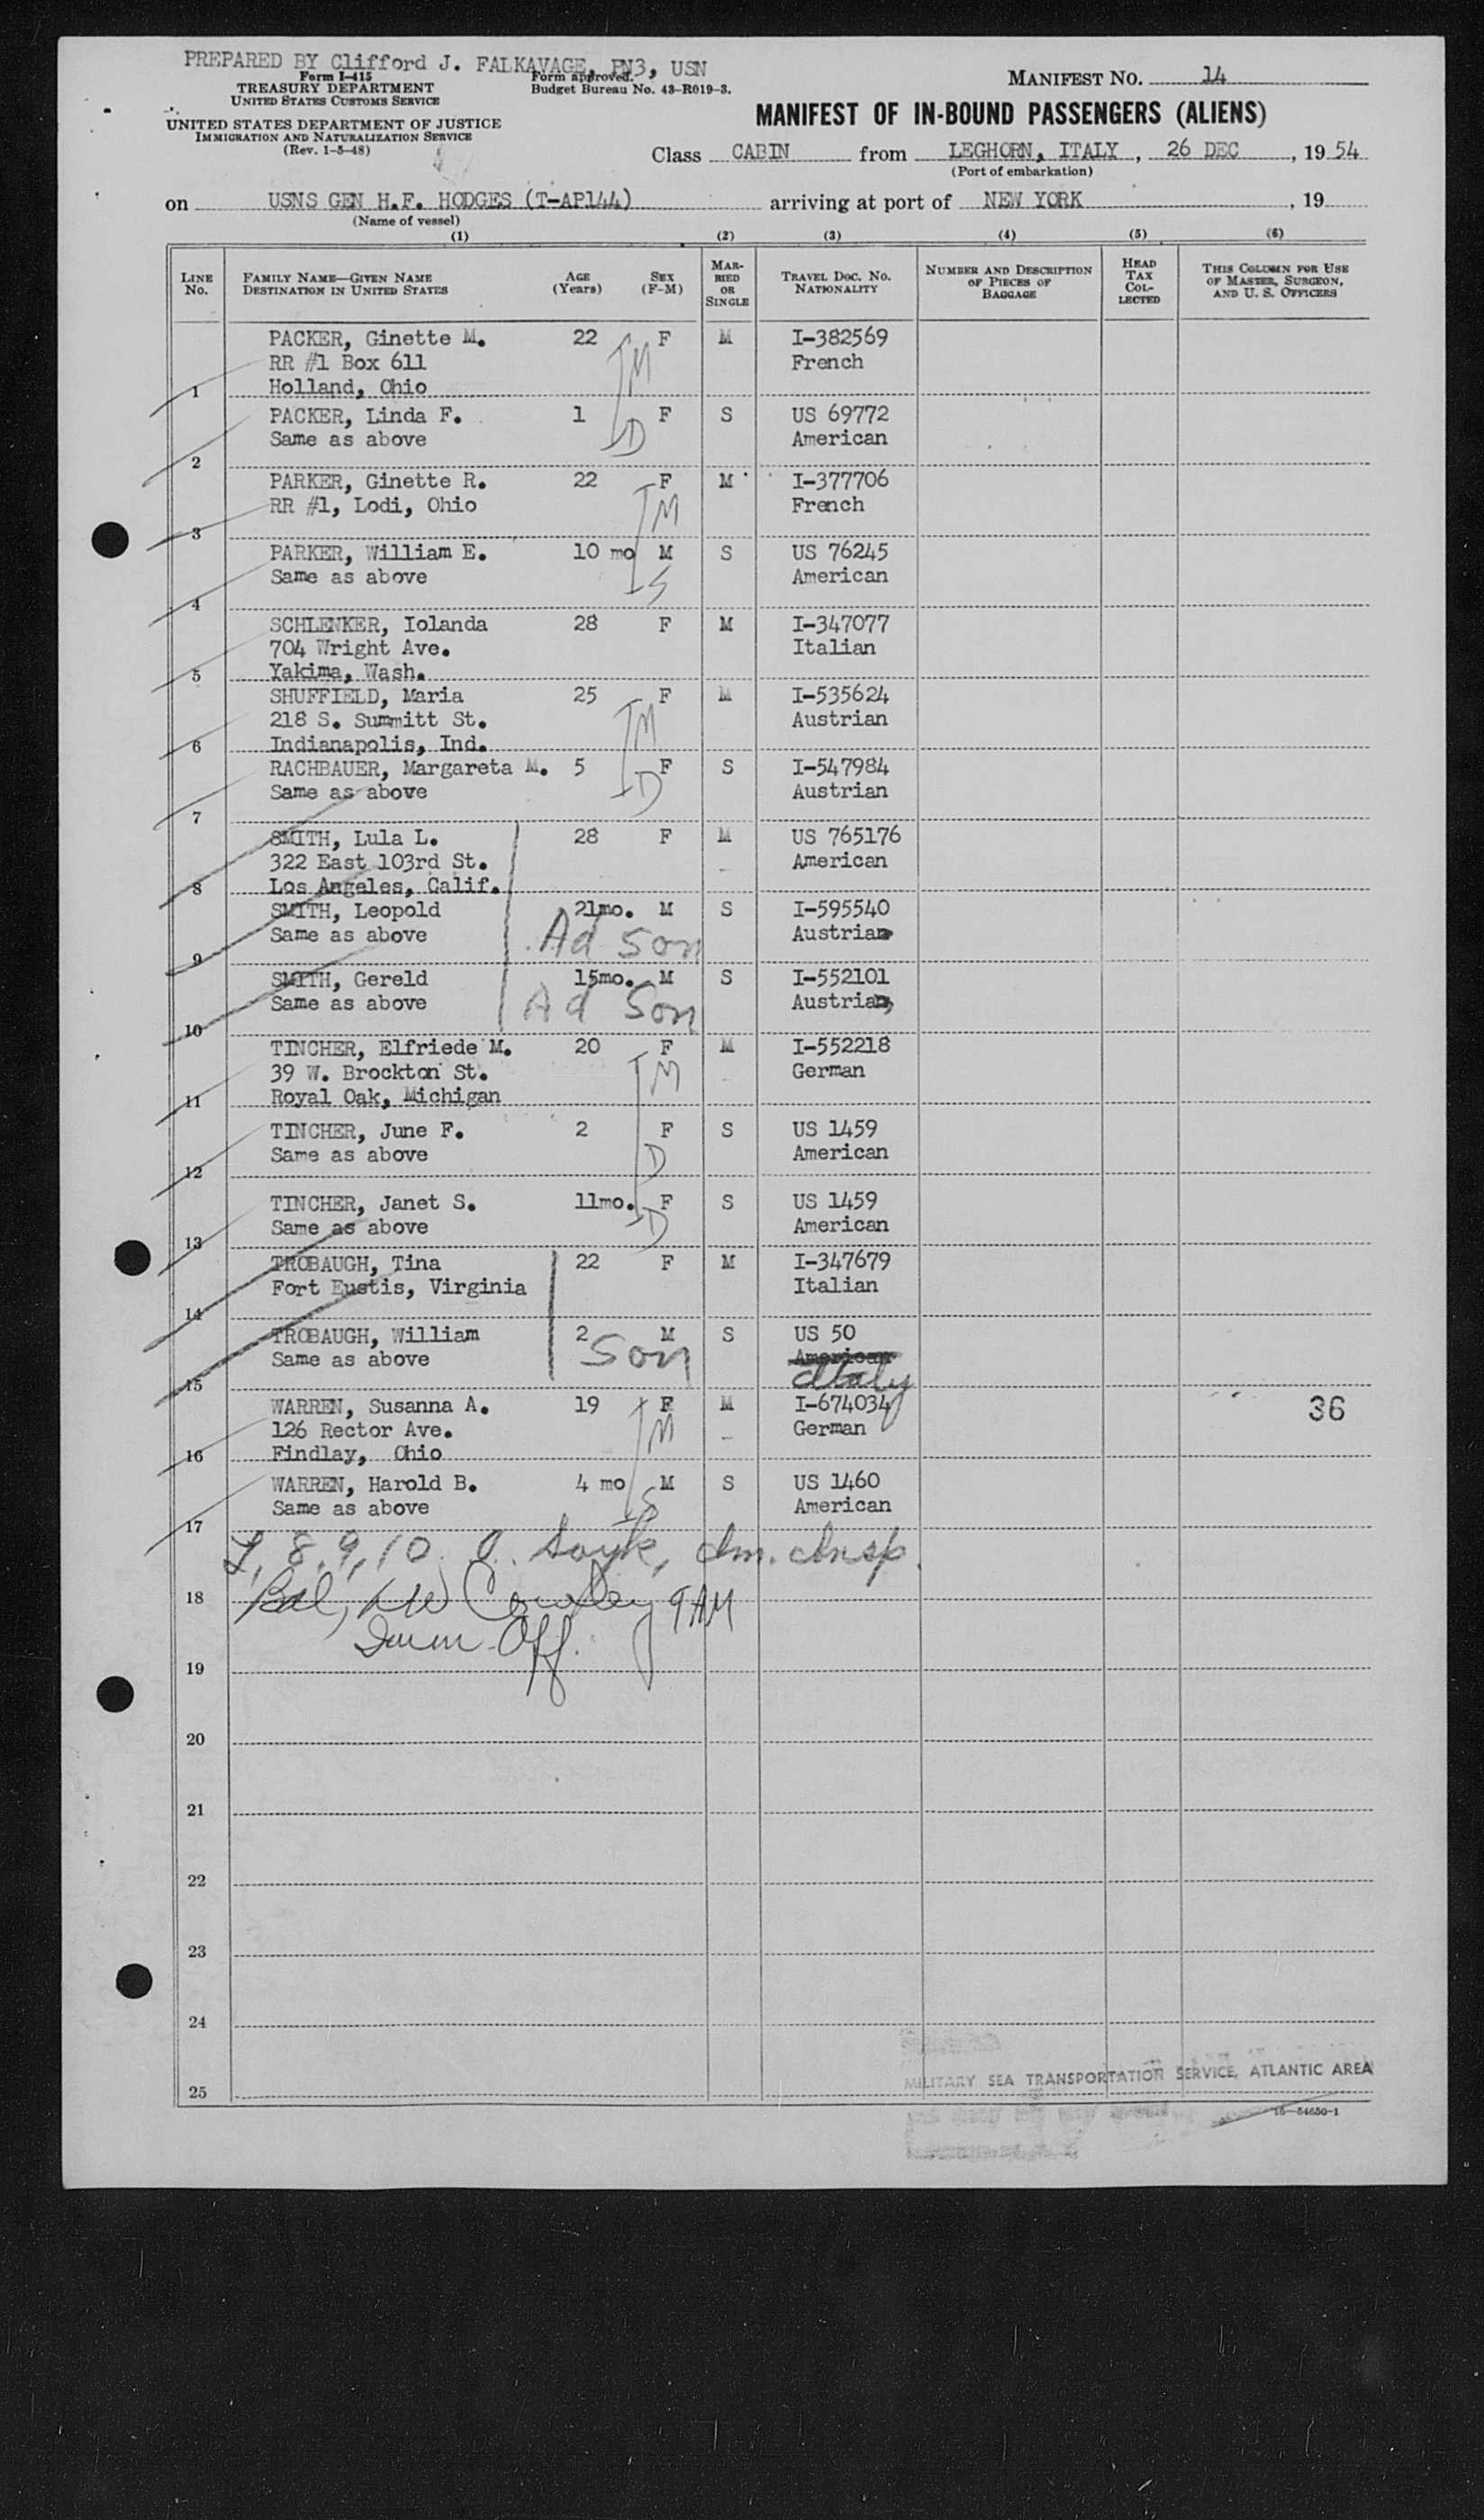 PREPARED BY Clifford J. FALKAVAGE, PN3, USN
Form I-415
TREASURY DEPARTMENT
UNITED STATES CUSTOMS SERVICE
UNITED STATES DEPARTMENT OF JUSTICE
IMMIGRATION AND NATURALIZATION SERVICE
(Rev. 1-5-48)
Form approved.
Budget Bureau No. 43-R019-3.
MANIFEST NO. 14
MANIFEST OF IN-BOUND PASSENGERS (ALIENS)
Class CABIN from LEGHORN, ITALY, 26 DEC, 1954
(Port of embarkation)
on USNS GEN H.F. HODGES (T-AP144) arriving at port of NEW YORK, 19
(Name of vessel)
(1) (2) (3) (4) (5) (6)
LINE NO. FAMILY NAME—GIVEN NAME DESTINATION IN UNITED STATES AGE (Years) SEX (F-M) MARRIED OR SINGLE TRAVEL DOC. NO. NATIONALITY NUMBER AND DESCRIPTION OF PIECES OF BAGGAGE HEAD TAX COLLECTED THIS COLUMN FOR USE OF MASTER, SURGEON, AND U. S. OFFICERS
PACKER, Ginette M. 22 F M I-382569
RR #1 Box 611 M French
1 Holland, Ohio
PACKER, Linda F. 1 F S US 69772
Same as above D American
2
PARKER, Ginette R. 22 F M I-377706
RR #1, Lodi, Ohio M French
3
PARKER, William E. 10 mo M S US 76245
Same as above S American
4
SCHLENKER, Iolanda 28 F M I-347077
704 Wright Ave. Italian
5 Yakima, Wash.
SHUFFIELD, Maria 25 F M I-535624
218 S. Summitt St. M Austrian
6 Indianapolis, Ind.
RACHBAUER, Margareta M. 5 F S I-547984
Same as above D Austrian
7
SMITH, Lula L. 28 F M US 765176
322 East 103rd St. American
8 Los Angeles, Calif.
SMITH, Leopold 21mo. M S I-595540
Same as above Ad Son Austrian
9
SMITH, Gereld 15mo. M S I-552101
Same as above Ad Son Austrian
10
TINCHER, Elfriede M. 20 F M I-552218
39 W. Brockton St. M German
11 Royal Oak, Michigan
TINCHER, June F. 2 F S US 1459
Same as above D American
12
TINCHER, Janet S. 11mo. F S US 1459
Same as above D American
13
TROBAUGH, Tina 22 F M I-347679
Fort Eustis, Virginia Italian
14
TROBAUGH, William 2 M S US 50
Same as above Son American
15 Italy
WARREN, Susanna A. 19 F M I-674034 36
126 Rector Ave. M German
16 Findlay, Ohio
WARREN, Harold B. 4 mo M S US 1460
Same as above S American
17
8, 9, 10 Im. Insp.
18 Bal, Cowley 9 AM
Imm. Off.
19
20
21
22
23
24
MILITARY SEA TRANSPORTATION SERVICE, ATLANTIC AREA
25
16-54650-1